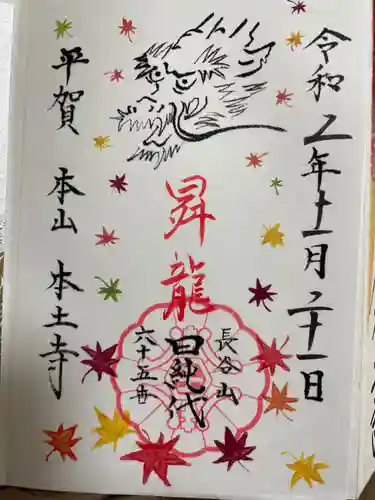 令和2年十一月二十一日
昇龍
長谷山
日純代
六十五世
本山 平賀 本山 本土寺